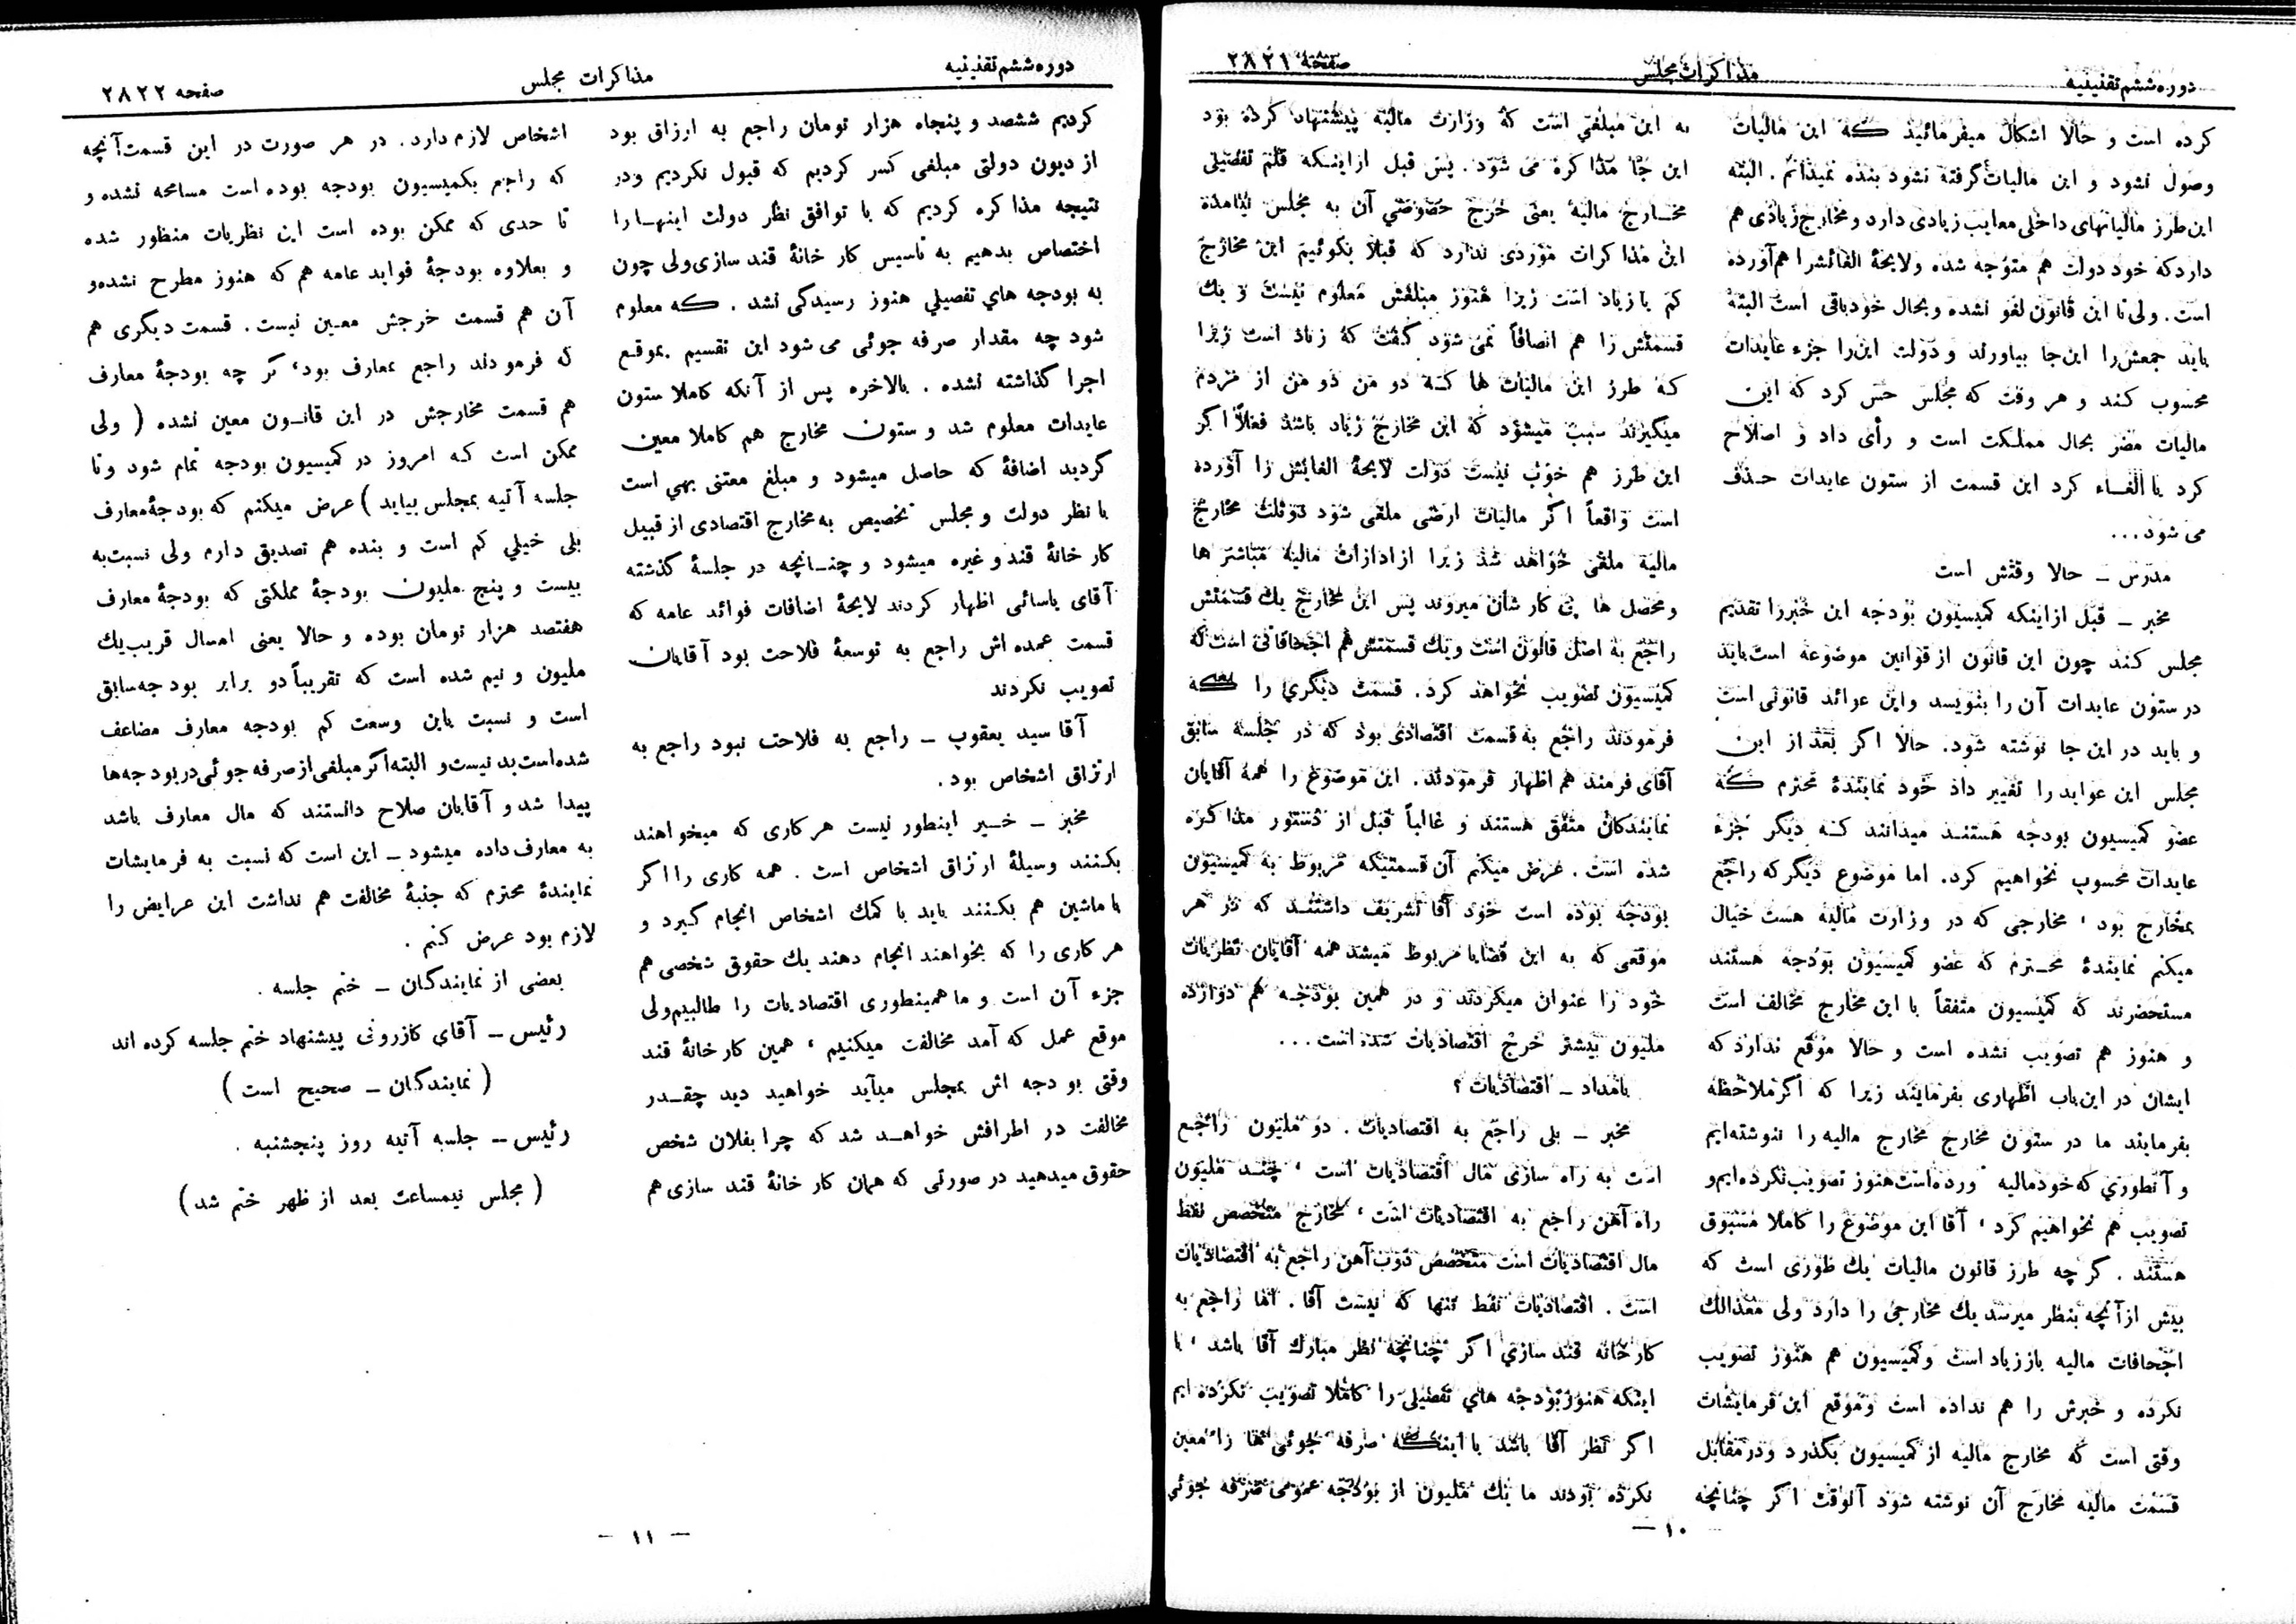 دوره ششم تقنینیه
مذاکرات مجلس
صفحه ۲۸۲۱
کرده است و حالا اشکال میفرمائید که این مالیات
وصول نشود و این مالیات گرفته نشود بنده نمیدانم . البته
این طرز مالیاتهای داخلی معایب زیادی دارد و مخارج زیادی هم
دارد که خود دولت هم متوجه شده و لایحهٔ الغائش را هم آورده
است . ولی تا این قانون لغو نشده و بحال خود باقی است البته
باید جمعش را این جا بیاورند و دولت این را جزء عایدات
محسوب کند و هر وقت که مجلس حس کرد که این
مالیات مضر بحال مملکت است و رأی داد و اصلاح
کرد یا الغاء کرد این قسمت از ستون عایدات حذف
می شود...
مدرس - حالا وقتش است
مخبر - قبل از اینکه کمیسیون بودجه این خبر را تقدیم
مجلس کند چون این قانون از قوانین موضوعه است باید
در ستون عایدات آن را بنویسد و این عوائد قانونی است
و باید در این جا نوشته شود. حالا اگر بعد از این
مجلس این عواید را تغییر داد خود نمایندهٔ محترم که
عضو کمیسیون بودجه هستند میدانند که دیگر جزء
عایدات محسوب نخواهیم کرد. اما موضوع دیگر که راجع
بمخارج بود ، مخارجی که در وزارت مالیه هست خیال
میکنم نمایندهٔ محترم که عضو کمیسیون بودجه هستند
مستحضرند که کمیسیون متفقاً با این مخارج مخالف است
و هنوز هم تصویب نشده است و حالا موقع ندارد که
ایشان در این باب اظهاری بفرمایند زیرا که اگر ملاحظه
بفرمایند ما در ستون مخارج مخارج مالیه را ننوشته‌ایم
و آنطوري که خود مالیه ورده است هنوز تصویب نکرده ایم و
تصویب هم نخواهیم کرد ، آقا این موضوع را کاملا مسبوق
هستند . گر چه طرز قانون مالیات یك طوری است که
بیش از آنچه بنظر میرسد یك مخارجی را دارد ولی معذالك
اجحافات مالیه باز زیاد است و کمیسیون هم هنوز تصویب
نکرده و خبرش را هم نداده است و موقع این فرمایشات
وقتی است که مخارج مالیه از کمیسیون بگذرد و در مقابل
قسمت مالیه مخارج آن نوشته شود آنوقت اگر چنانچه
به این مبلغی است که وزارت مالیه پیشنهاد کرده بود
این جا مذاکره می شود . پس قبل از اینکه قلم تفصیلی
مخارج مالیه یعنی خرج خصوصي آن به مجلس نیامده
این مذاکرات موردی ندارد که قبلا بگوئیم این مخارج
کم یا زیاد است زیرا هنوز مبلغش معلوم نیست و یك
قسمتش را هم انصافاً نمی شود گفت که زیاد است زیرا
که طرز این مالیات ها که دو من دو من از مردم
میگیرند سبب میشود که این مخارج زیاد باشد فعلاً اگر
این طرز هم خوب نیست دولت لایحهٔ الغایش را آورده
است واقعاً اگر مالیات ارضی ملغی شود دوثلث مخارج
مالیه ملغی خواهد شد زیرا از ادارات مالیه مباشر ها
و محصل ها پی کار شان میروند پس این مخارج یك قسمتش
راجع به اصل قانون است و یك قسمتش هم اجحافاتی است که
کمیسیون تصویب نخواهد کرد. قسمت دیگری را که
فرمودند راجع به قسمت اقتصادی بود که در جلسه سابق
آقای فرمند هم اظهار فرمودند. این موضوع را همه آقایان
نمایندگان متفق هستند و غالباً قبل از دستور مذاکره
شده است . عرض میکنم آن قسمتیکه مربوط به کمیسیون
بودجه بوده است خود آقا تشریف داشتند که در هر
موقعی که به این قضایا مربوط میشد همه آقایان نظریات
خود را عنوان میکردند و در همین بودجه هم دوازده
ملیون بیشتر خرج اقتصادیات شده است...
بامداد - اقتصادیات ؟
مخبر - بلی راجع به اقتصادیات . دو ملیون راجع
است به راه سازی مال اقتصادیات است ، چند ملیون
راه آهن راجع به اقتصادیات است ، مخارج متخصص نفط
مال اقتصادیات است متخصص ذوب آهن راجع به اقتصادیات
است . اقتصادیات نقط تنها که نیست آقا . اما راجع به
کارخانه قند سازي اگر چنانچه نظر مبارك آقا باشد ، با
اینکه هنوز بودجه هاي تفصیلی را کاملا تصویب نکرده ایم
اگر نظر آقا باشد با اینکه صرفه جوئی ها را معین
نکرده بودند ما یك ملیون از بودجه عمومی صرفه جوئي
- ۱۰ -
دوره ششم تقنینیه
مذاکرات مجلس
صفحه ۲۸۲۲
کردیم ششصد و پنجاه هزار تومان راجع به ارزاق بود
از دیون دولتی مبلغی کسر کردیم که قبول نکردیم ودر
نتیجه مذاکره کردیم که با توافق نظر دولت اینها را
اختصاص بدهیم به تاسیس کار خانهٔ قند سازی ولی چون
به بودجه هاي تفصیلي هنوز رسیدگی نشد . که معلوم
شود چه مقدار صرفه جوئی می شود این تقسیم بموقع
اجرا گذاشته نشده . بالاخره پس از آنکه کاملا ستون
عایدات معلوم شد و ستون مخارج هم کاملا معین
گردید اضافهٔ که حاصل میشود و مبلغ معتنی بهي است
با نظر دولت و مجلس تخصیص به مخارج اقتصادی از قبیل
کار خانهٔ قند و غیره میشود و چنانچه در جلسهٔ گذشته
آقای یاسائی اظهار کردند لایحهٔ اضافات فوائد عامه که
قسمت عمده اش راجع به توسعهٔ فلاحت بود آقایان
تصویب نکردند
آقا سید یعقوب - راجع به فلاحت نبود راجع به
ارتزاق اشخاص بود .
مخبر - خیر اینطور نیست هر کاری که میخواهند
بکنند وسیلهٔ ارتزاق اشخاص است . همه کاری را اگر
با ماشین هم بکنند باید با کمك اشخاص انجام گیرد و
هر کاری را که بخواهند انجام دهند یك حقوق شخصی هم
جزء آن است و ما همینطوری اقتصادیات را طالبیم ولی
موقع عمل که آمد مخالفت میکنیم ، همین کار خانهٔ قند
وقتی بودجه اش بمجلس میآید خواهید دید چقدر
مخالفت در اطرافش خواهد شد که چرا بفلان شخص
حقوق میدهید در صورتی که همان کار خانهٔ قند سازی هم
اشخاص لازم دارد. در هر صورت در این قسمت آنچه
که راجع بکمیسیون بودجه بوده است مسامحه نشده و
تا حدی که ممکن بوده است این نظریات منظور شده
و بعلاوه بودجهٔ فواید عامه هم که هنوز مطرح نشده و
آن هم قسمت خرجش معین نیست . قسمت دیگری هم
که فرمودند راجع بمعارف بود ، گر چه بودجهٔ معارف
هم قسمت مخارجش در این قانون معین نشده ( ولی
ممکن است که امروز در کمیسیون بودجه تمام شود و تا
جلسه آتیه بمجلس بیاید ) عرض میکنم که بودجهٔ معارف
بلی خیلي کم است و بنده هم تصدیق دارم ولی نسبت به
بیست و پنج ملیون بودجهٔ مملکتی که بودجهٔ معارف
هفتصد هزار تومان بوده و حالا یعنی امسال قریب یك
ملیون و نیم شده است که تقریباً دو برابر بودجه سابق
است و نسبت باین وسعت کم بودجه معارف مضاعف
شده است بد نیست و البته اگر مبلغی از صرفه جوئی در بودجه ها
پیدا شد و آقایان صلاح دانستند که مال معارف باشد
به معارف داده میشود - این است که نسبت به فرمایشات
نمایندهٔ محترم که جنبهٔ مخالفت هم نداشت این عرایض را
لازم بود عرض کنم .
بعضی از نمایندگان - ختم جلسه .
رئیس - آقای کازرونی پیشنهاد ختم جلسه کرده اند
( نمایندگان - صحیح است )
رئیس - جلسه آتیه روز پنجشنبه .
( مجلس نیمساعت بعد از ظهر ختم شد )
- ۱۱ -